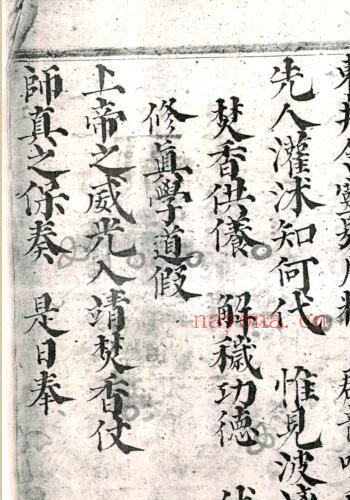 先人灌沐知何代 惟見波
焚香供儀 解穢功德
修眞學道假
上帝之威光入靖焚香仗
師真之保奏 是日奉
nayona.cn